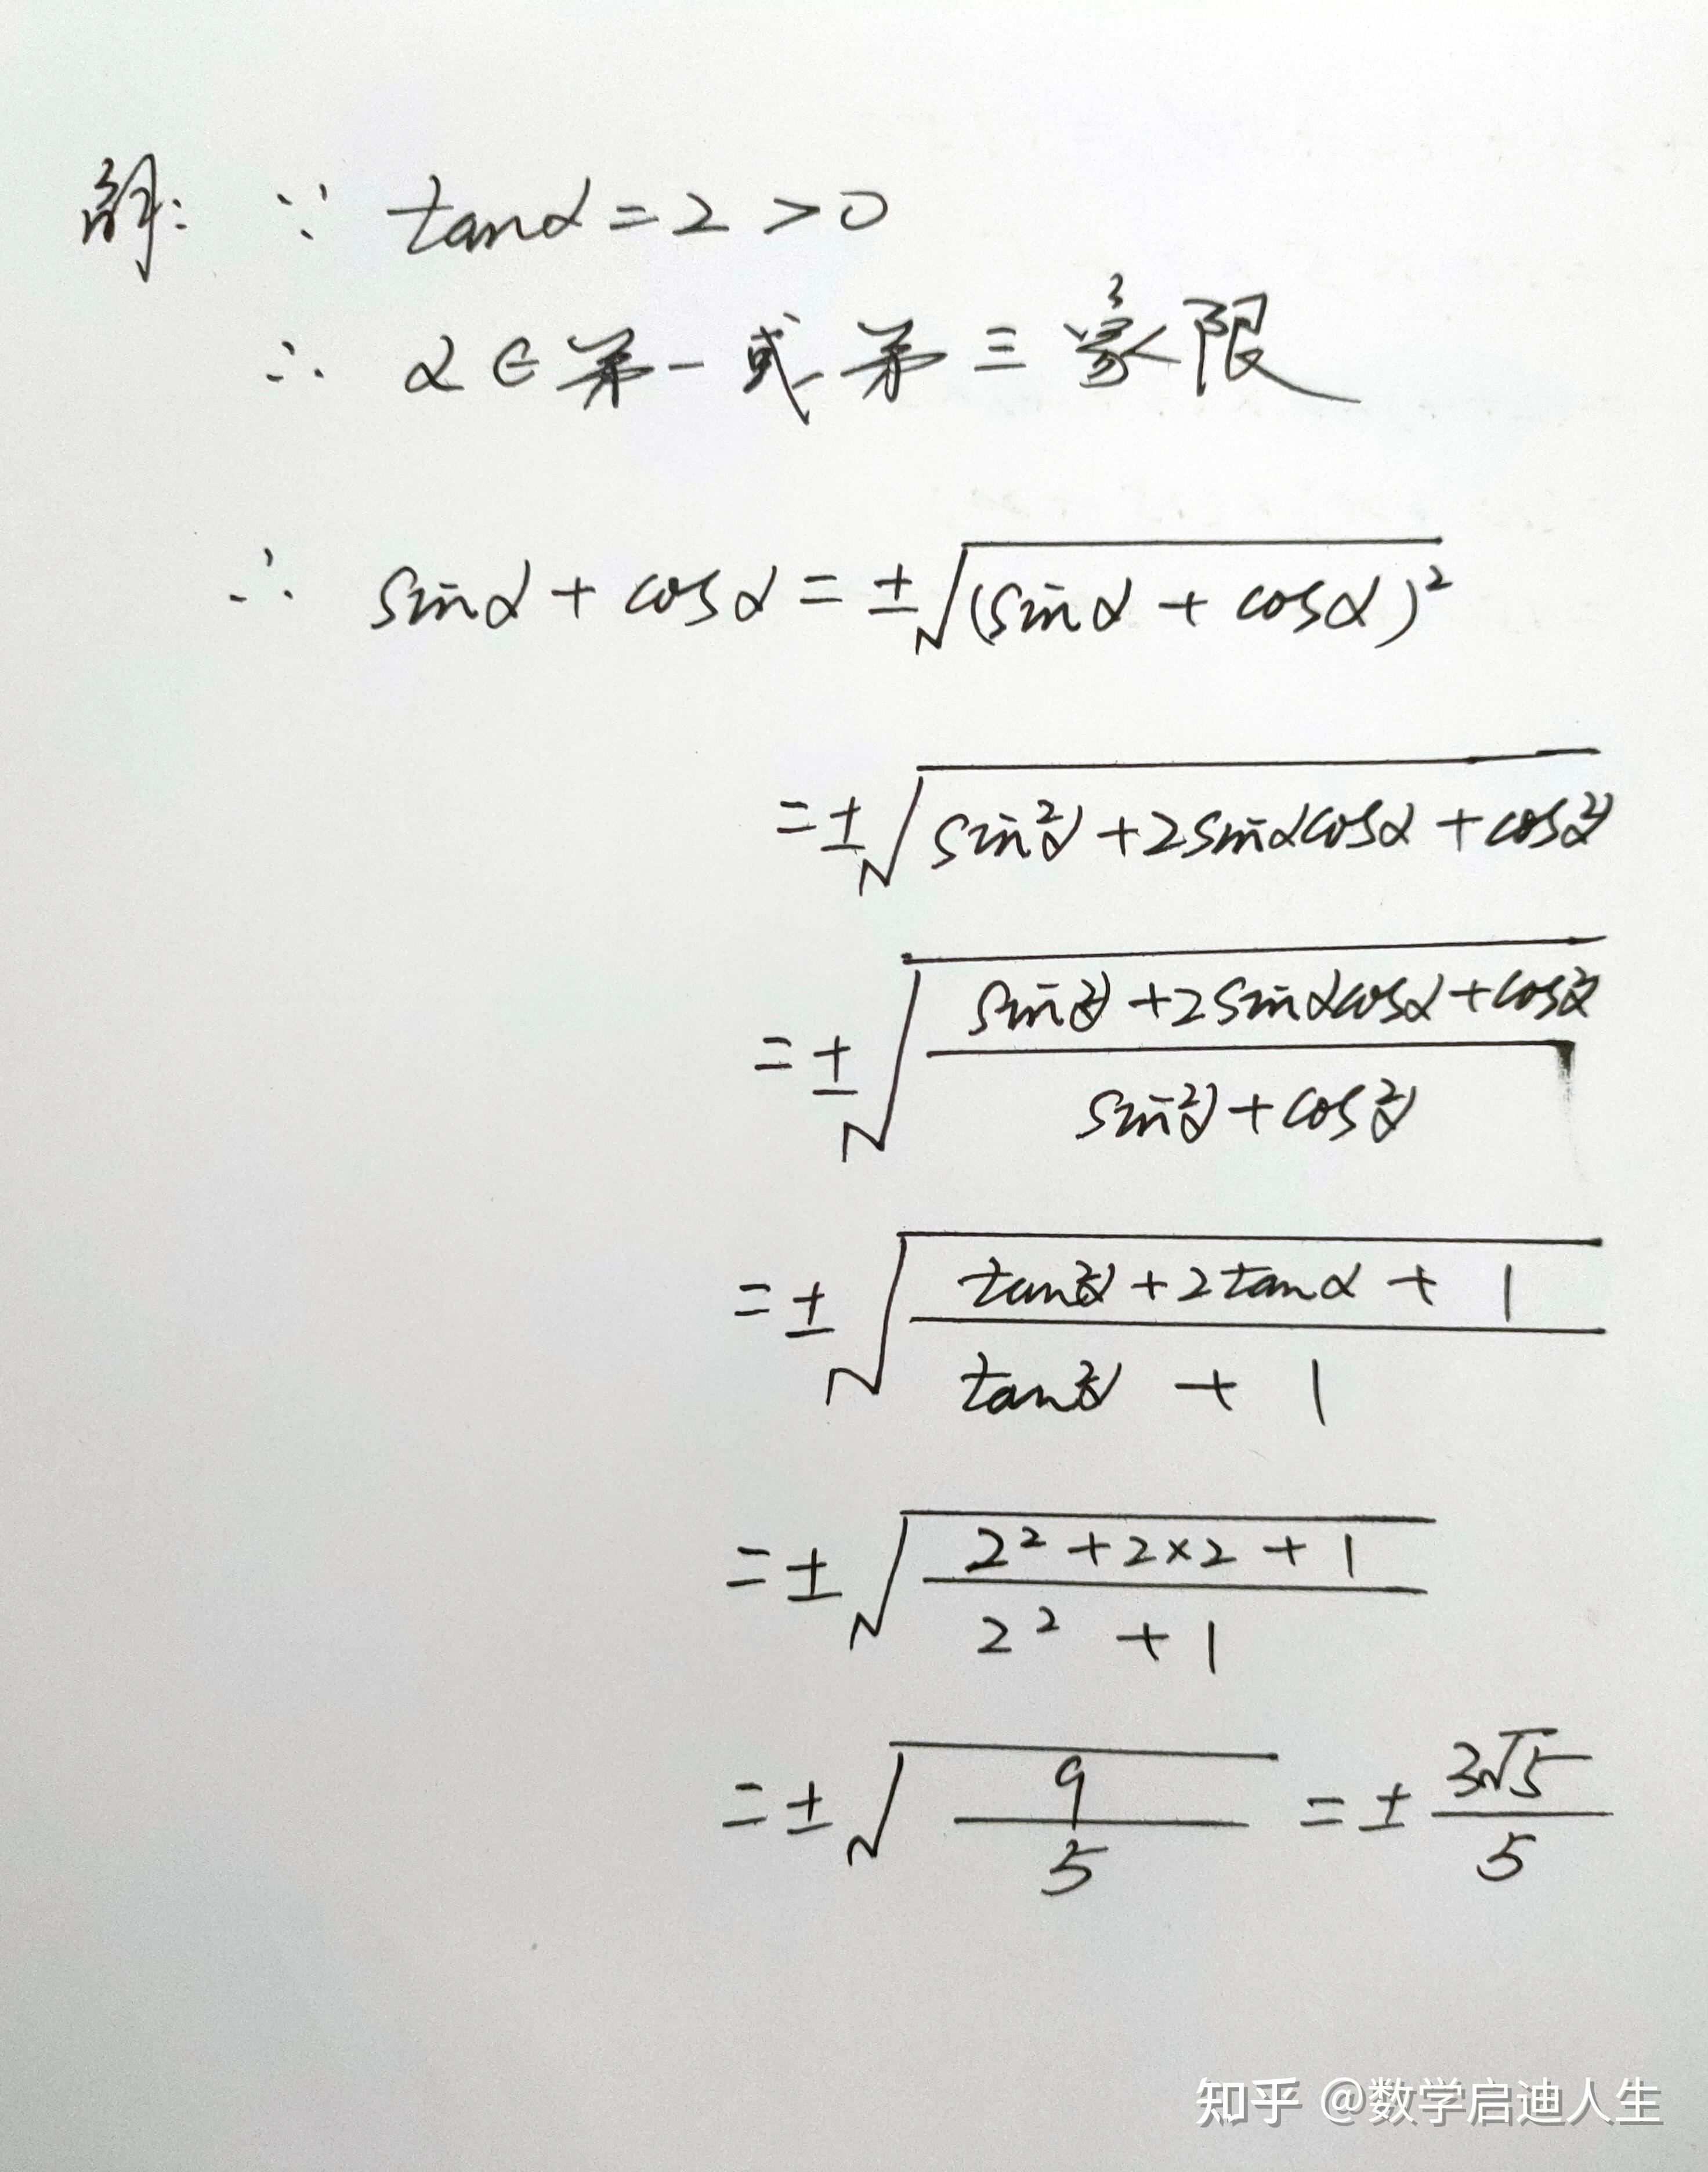 解: ∵ tanα = 2 > 0
∴ α ∈ 第一或第三象限
∴ sinα + cosα = ±√(sinα + cosα)²
= ±√(sin²α + 2sinαcosα + cos²α)
= ±√((sin²α + 2sinαcosα + cos²α)/(sin²α + cos²α))
= ±√((tan²α + 2tanα + 1)/(tan²α + 1))
= ±√((2² + 2×2 + 1)/(2² + 1))
= ±√(9/5) = ± 3√5/5
知乎 @数学启迪人生